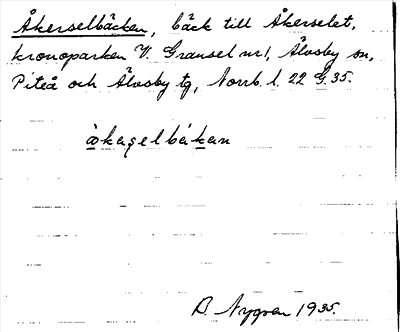 Åkerselbäcken, bäck till Åkerselet,
kronoparken V. Gransel nr 1, Älvsby sn,
Piteå och Älvsby tg, Norrb. l. 22 G. 35.
åkaşelbäkan
B. Nygren 1935.